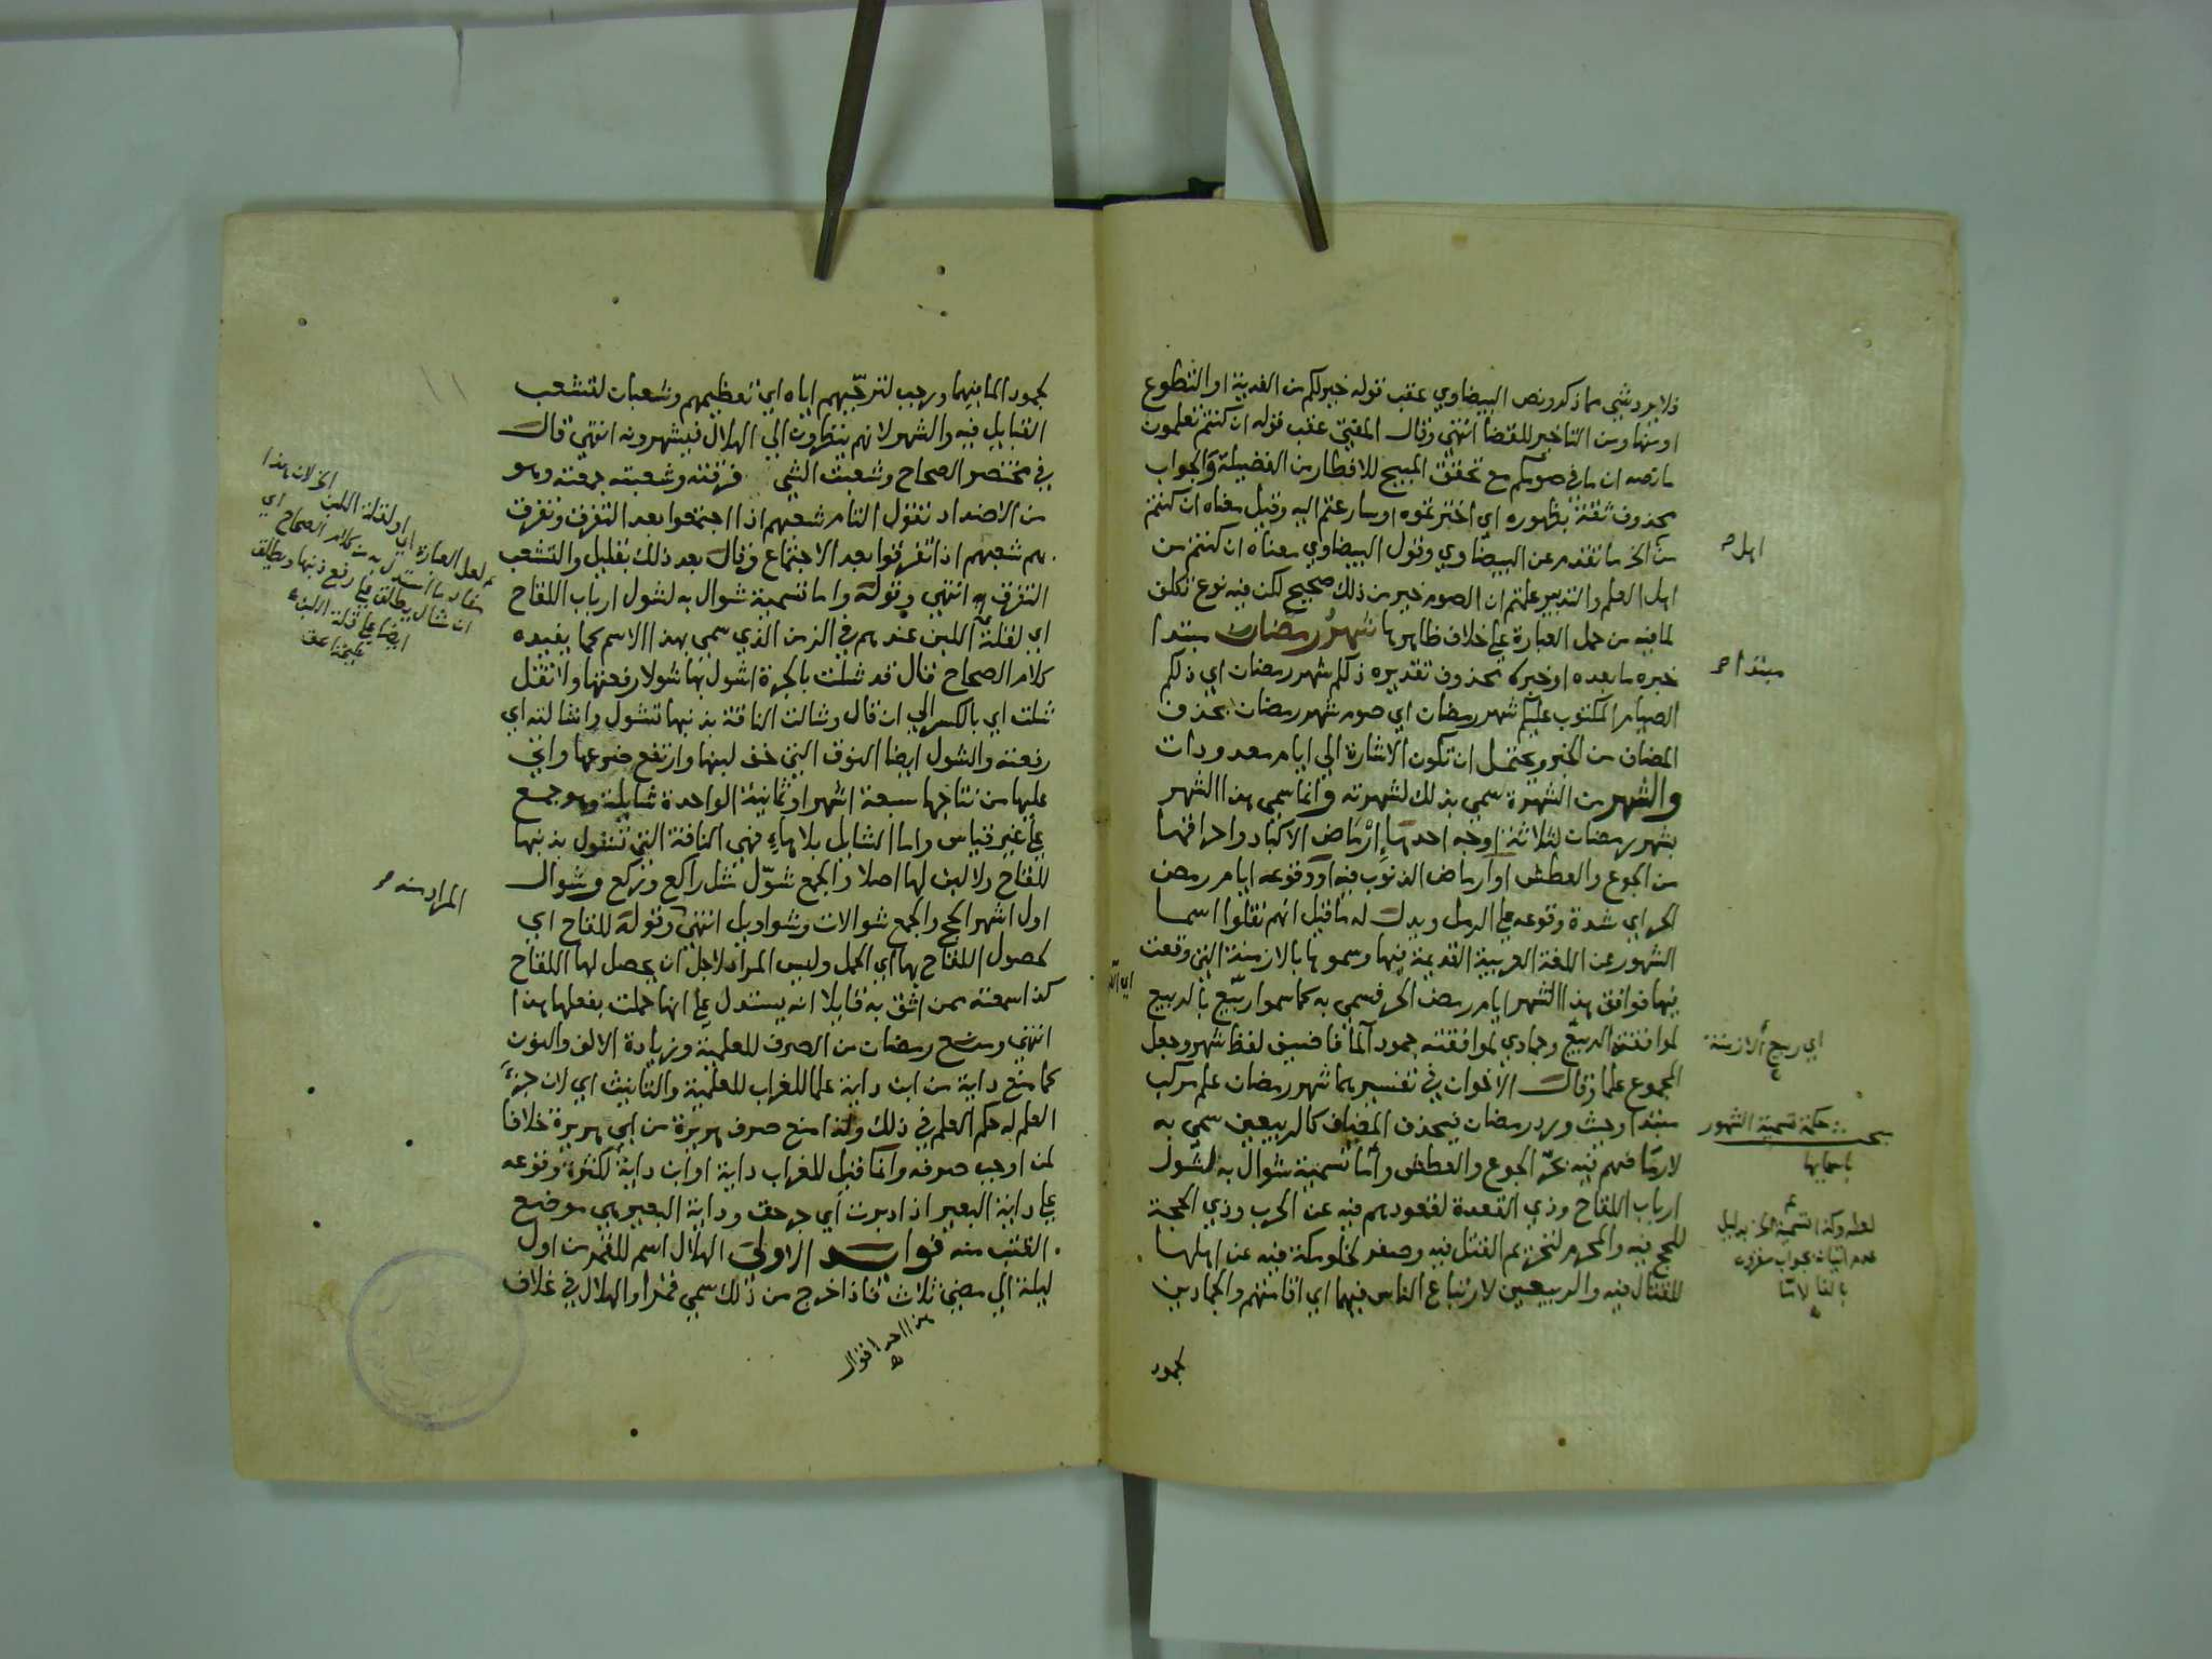 فلا يرد شي مما ذكر ونص البيضاوي عقب قوله خير لكم من الفدية او التطوع
او منها ومن التاخير للقضا انتهى وقال المفتي عقب قوله ان كنتم تعلمون
ما نصه ان ما في صومكم مع تحقق المبيح للافطار من الفضيلة والجواب
محذوف ثقة بظهوره اي اخترتموه او سارعتم اليه وقيل معناه ان كنتم
من الخ ما تقدم عن البيضاوي وقول البيضاوي معناه ان كنتم من
اهل العلم والتدبير علمتم ان الصوم خير من ذلك صحيح لكن فيه نوع تكلف
لما فيه من حمل العبارة على خلاف ظاهرها شهر رمضان مبتدا
خبره ما بعده او خبر محذوف تقديره ذلكم شهر رمضان اي ذلكم
الصيام المكتوب عليكم شهر رمضان اي صوم شهر رمضان بحذف
المضاف من الخبر ويحتمل ان تكون الاشارة الي ايام معدودات
والشهر من الشهرة سمي بذلك لشهرته وانما سمي هذا الشهر
بشهر رمضان لثلاثة اوجه احدها ارتماض الاكباد واحراقها
من الجوع والعطش او ارتماض الذنوب فيه او وقوعه ايام رمض
الحر اي شدة وقوعه على الرمل ويدل له ما قيل انهم نقلوا اسما
الشهور عن اللغة العربية القديمة فيها وسموها بالازمنة التي وقعت
فيها فوافق هذا الشهر ايام رمض الحر فسمي به كما سموا ربيع بالربيع
لموافقته الربيع وجمادي لموافقته جمود الما فاضيف لفظ شهر وجعل
المجموع علما وقال الاخوان في تفسيرهما شهر رمضان علم مركب
مبتدا وحيث ورد رمضان فبحذف المضاف كالربيعين سمي به
لارتماضهم فيه بحر الجوع والعطش واما تسمية شوال به لشول
ارباب اللقاح وذي القعدة لقعودهم فيه عن الحرب وذي الحجة
للحج فيه والمحرم لتحريم القتل فيه وصفر لخلو مكة فيه عن اهلها
للقتال فيه والربيعين لارتباع الناس فيهما اي اقامتهم والجمادين
بجمود
اهل صح
مبتدا صح
اي ربيع الازمنة
حكمة تسمية الشهور
باسمايها
بجمود الما فيهما ورجب لترجيبهم اياه اي تعظيمهم وشعبان لتشعب
القبايل فيه والشهر لانهم ينظرون الي الهلال فيشهرونه انتهى قال
في مختصر الصحاح وشعبت الشي فرقته وشعبته جمعته وهو
من الاضداد تقول التام شعبهم اذا اجتمعوا بعد التفرق وتفرق
هم شعبهم اذا تفرقوا بعد الاجتماع وقال بعد ذلك بقليل والتشعب
التفرق انتهي وقوله واما تسمية شوال به لشول ارباب اللقاح
اي لقلة اللبن عندهم في الزمن الذي سمي بهذا الاسم كما يفيده
كلام الصحاح قال قد شلت بالجرة اشول بها شولا رفعتها ولا تقل
شلت اي بالكسر الي ان قال وشالت الناقة بذنبها تشول واشالته اي
رفعته والشول ايضا النوق التي خف لبنها وارتفع ضرعها واتى
عليها من نتاجها سبعة اشهر او ثمانية الواحدة شايلة وهو جمع
على غير قياس واما الشايل بلا هاء فهي الناقة التي تشول بذنبها
للقاح ولا لبن لها اصلا والجمع شول مثل راكع وركع وشوال
اول اشهر الحج والجمع شوالات وشواويل انتهى وقوله للقاح اي
لحصول اللقاح بها اي الحمل وليس المراد لاجل ان يحصل لها اللقاح
كذا سمعته ممن اثق به قايلا انه يستدل على انها حملت بفعلها هذا
انتهى ومنع رمضان من الصرف للعلمية وزيادة الالف والنون
كما منع داية من ابن داية علما للغراب للعلمية والتانيث اي لان جزء
العلم له حكم العلم في ذلك ولذا منع صرف هريرة من ابي هريرة خلافا
لمن اوجب صرفه وانما قيل للغراب داية او ابن داية لكثرة وقوعه
على داية البعير اذا دبرت اي جرحت وداية البعير هي موضع
القتب منه فوايد الاولى الهلال اسم للقمر من اول
ليلة الي مضي ثلاث فاذا خرج من ذلك سمي قمرا والهلال في غلاف
هذا احد اقوال
المراد منه صح